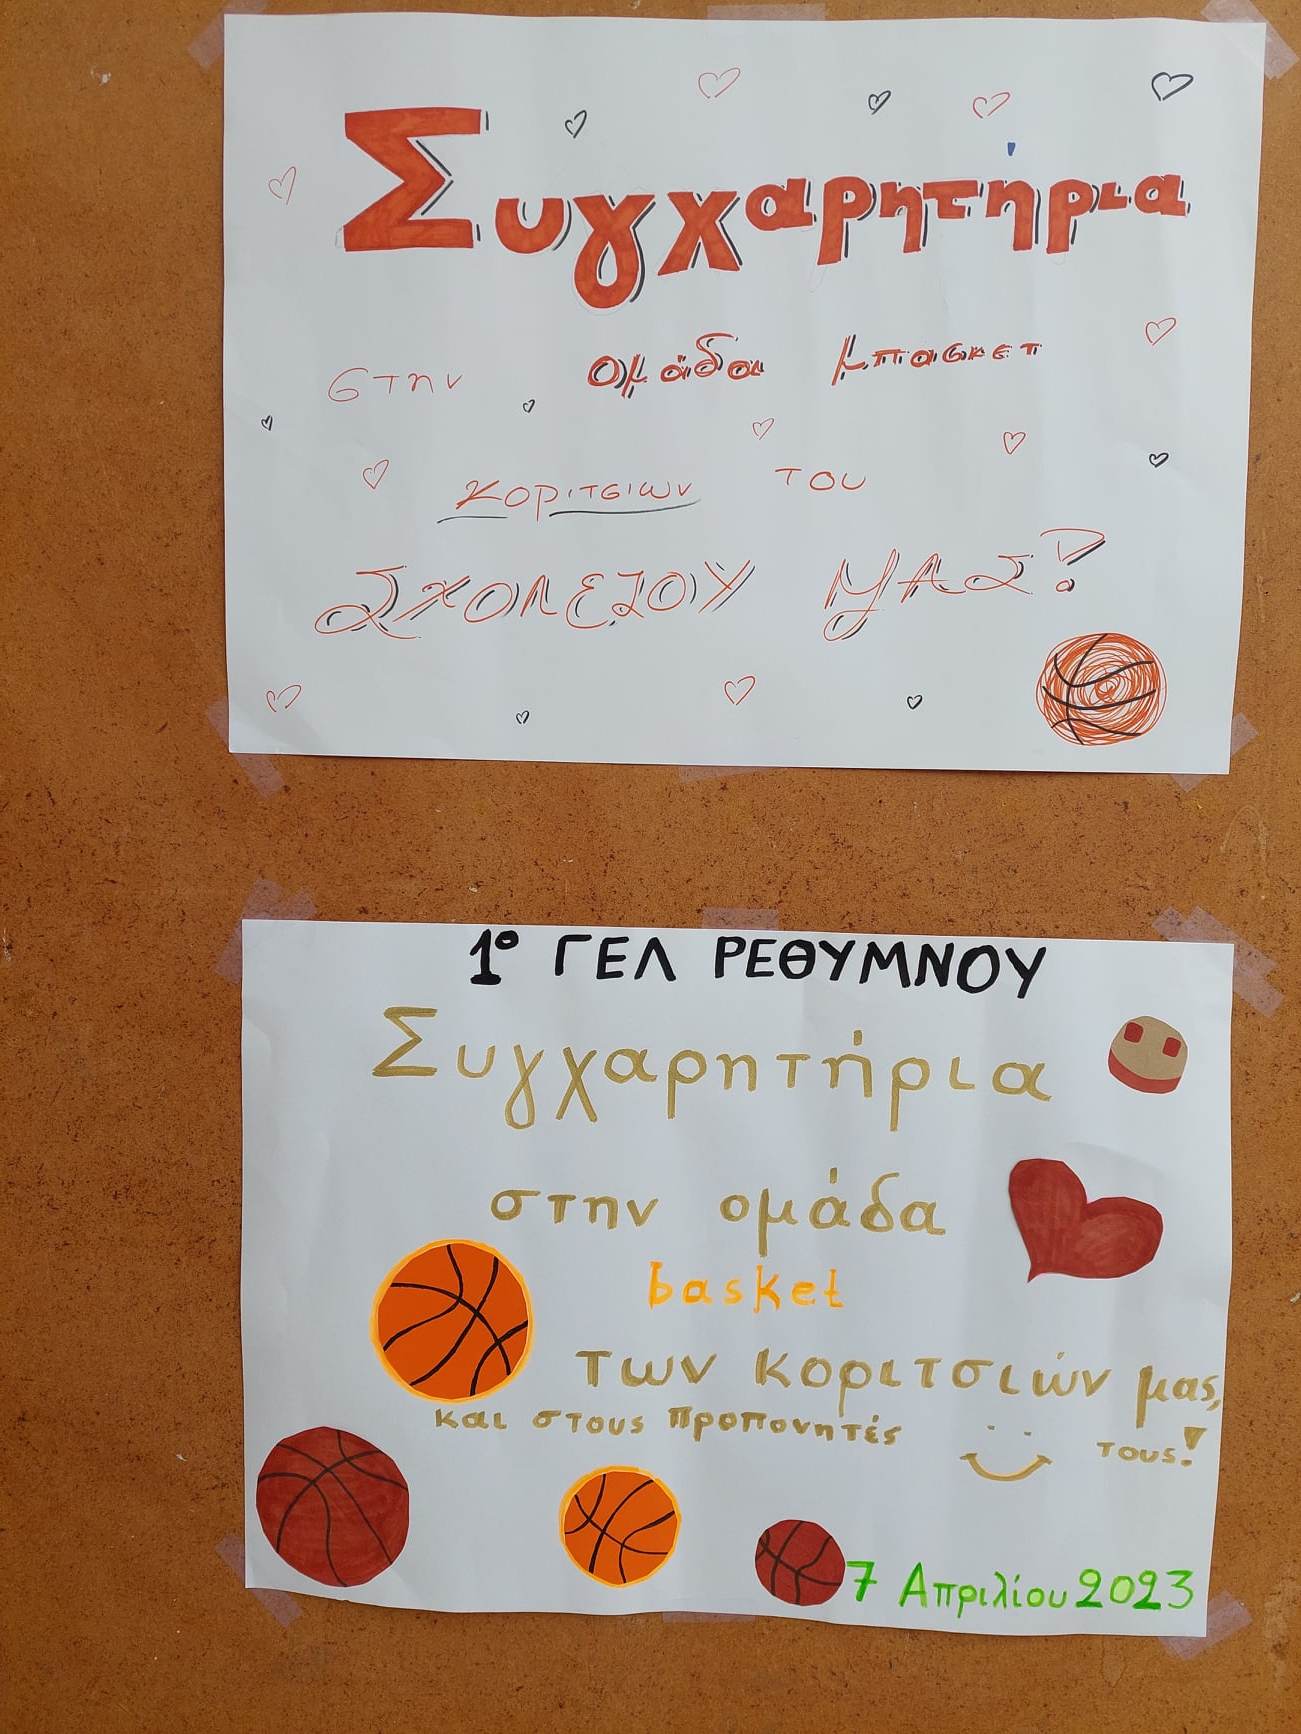 Συγχαρητήρια
στην ομάδα μπασκετ
κοριτσιων του
ΣΧΟΛΕΙΟΥ ΜΑΣ!
1° ΓΕΛ ΡΕΘΥΜΝΟΥ
Συγχαρητήρια
στην ομάδα
basket
των κοριτσιών μας,
και στους προπονητές τους!
7 Απριλίου 2023